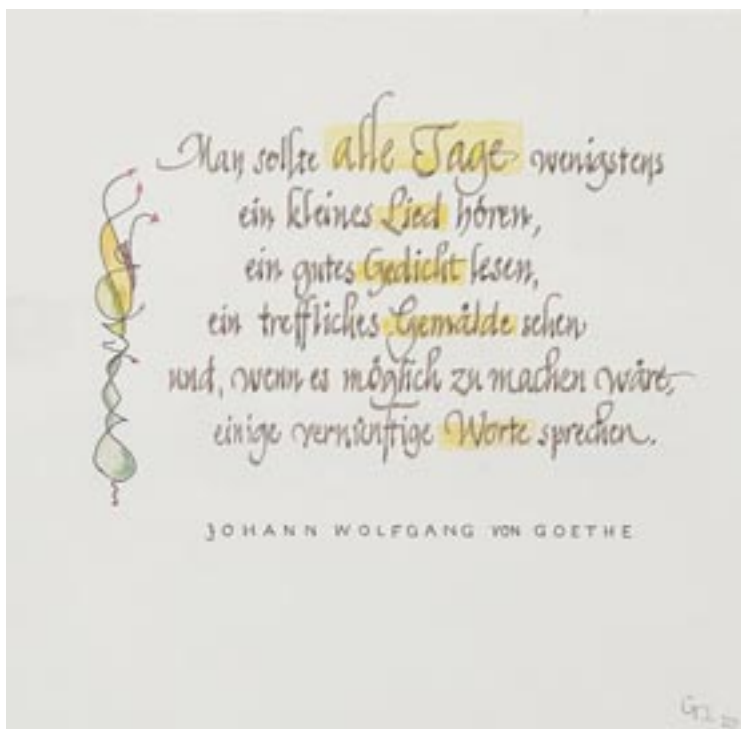 Man sollte alle Tage wenigstens
ein kleines Lied hören,
ein gutes Gedicht lesen,
ein treffliches Gemälde sehen
und, wenn es möglich zu machen wäre,
einige vernünftige Worte sprechen.
JOHANN WOLFGANG VON GOETHE